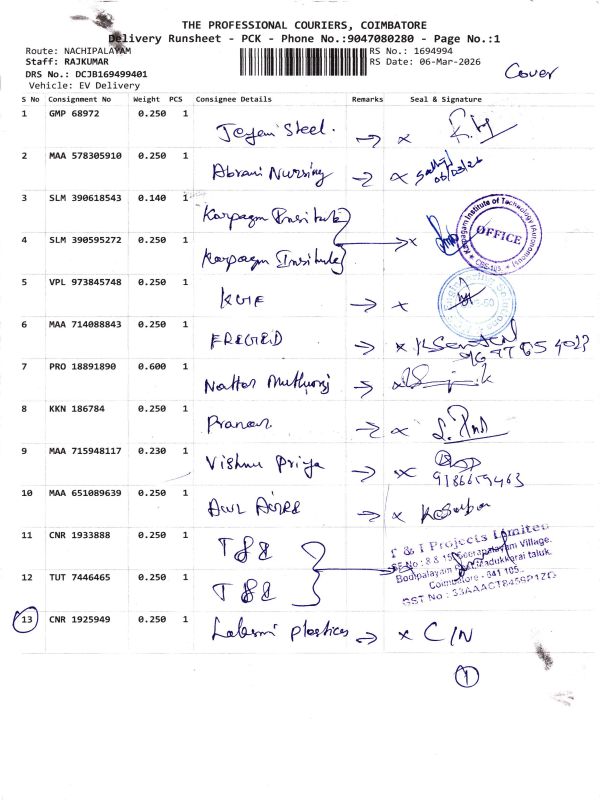 THE PROFESSIONAL COURIERS, COIMBATORE
Delivery Runsheet - PCK - Phone No.:9047080280 - Page No.:1
Route: NACHIPALAYAM RS No.: 1694994
Staff: RAJKUMAR RS Date: 06-Mar-2026
DRS No.: DCJB169499401 Cover
Vehicle: EV Delivery
S No Consignment No Weight PCS Consignee Details Remarks Seal & Signature
1 GMP 68972 0.250 1 Jeyam Steel. → x
2 MAA 578305910 0.250 1 Abrami Nursing → x 06/03/26
3 SLM 390618543 0.140 1 Karpagm Institute
4 SLM 390595272 0.250 1 Karpagm Institute → x
Karpagam Institute of Technology (Autonomous)
OFFICE
CBE-105
5 VPL 973845748 0.250 1 → x
6 MAA 714088843 0.250 1 → x
7 PRO 18891890 0.600 1 → x
8 KKN 186784 0.250 1 Pranav → x
9 MAA 715948117 0.230 1 Vishnu Priya → x
9186659463
10 MAA 651089639 0.250 1 → x
11 CNR 1933888 0.250 1 T & I
12 TUT 7446465 0.250 1 T & I → x
T & I Projects Limited
SF No : 8 & 15, Seerapalayam Village,
Bodipalayam Madukkarai taluk,
Coimbatore - 641 105.
13 CNR 1925949 0.250 1 Laksmi plastices → x C/N
1